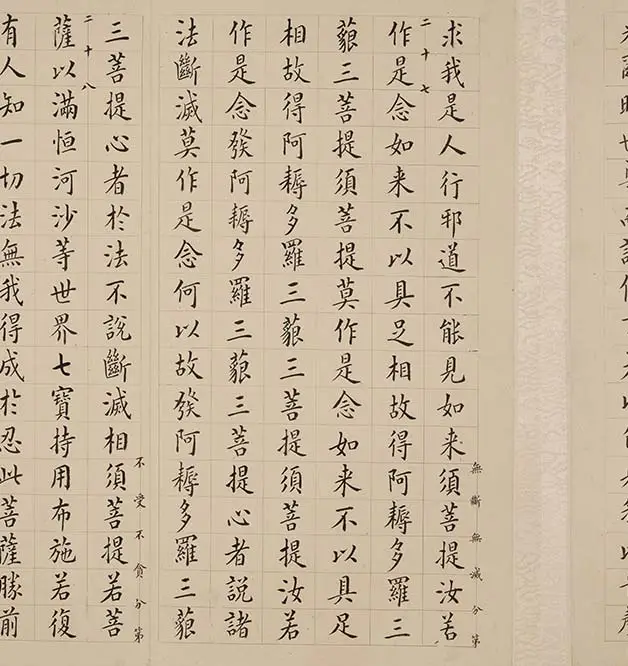 求我是人行邪道不能見如来須菩提汝若
無斷無滅分第
二十七
作是念如来不以具足相故得阿耨多羅三
藐三菩提須菩提莫作是念如来不以具足
相故得阿耨多羅三藐三菩提須菩提汝若
作是念發阿耨多羅三藐三菩提心者說諸
法斷滅莫作是念何以故發阿耨多羅三藐
三菩提心者於法不說斷滅相須菩提若菩
不受不貪分第
二十八
薩以滿恒河沙等世界七寶持用布施若復
有人知一切法無我得成於忍此菩薩勝前